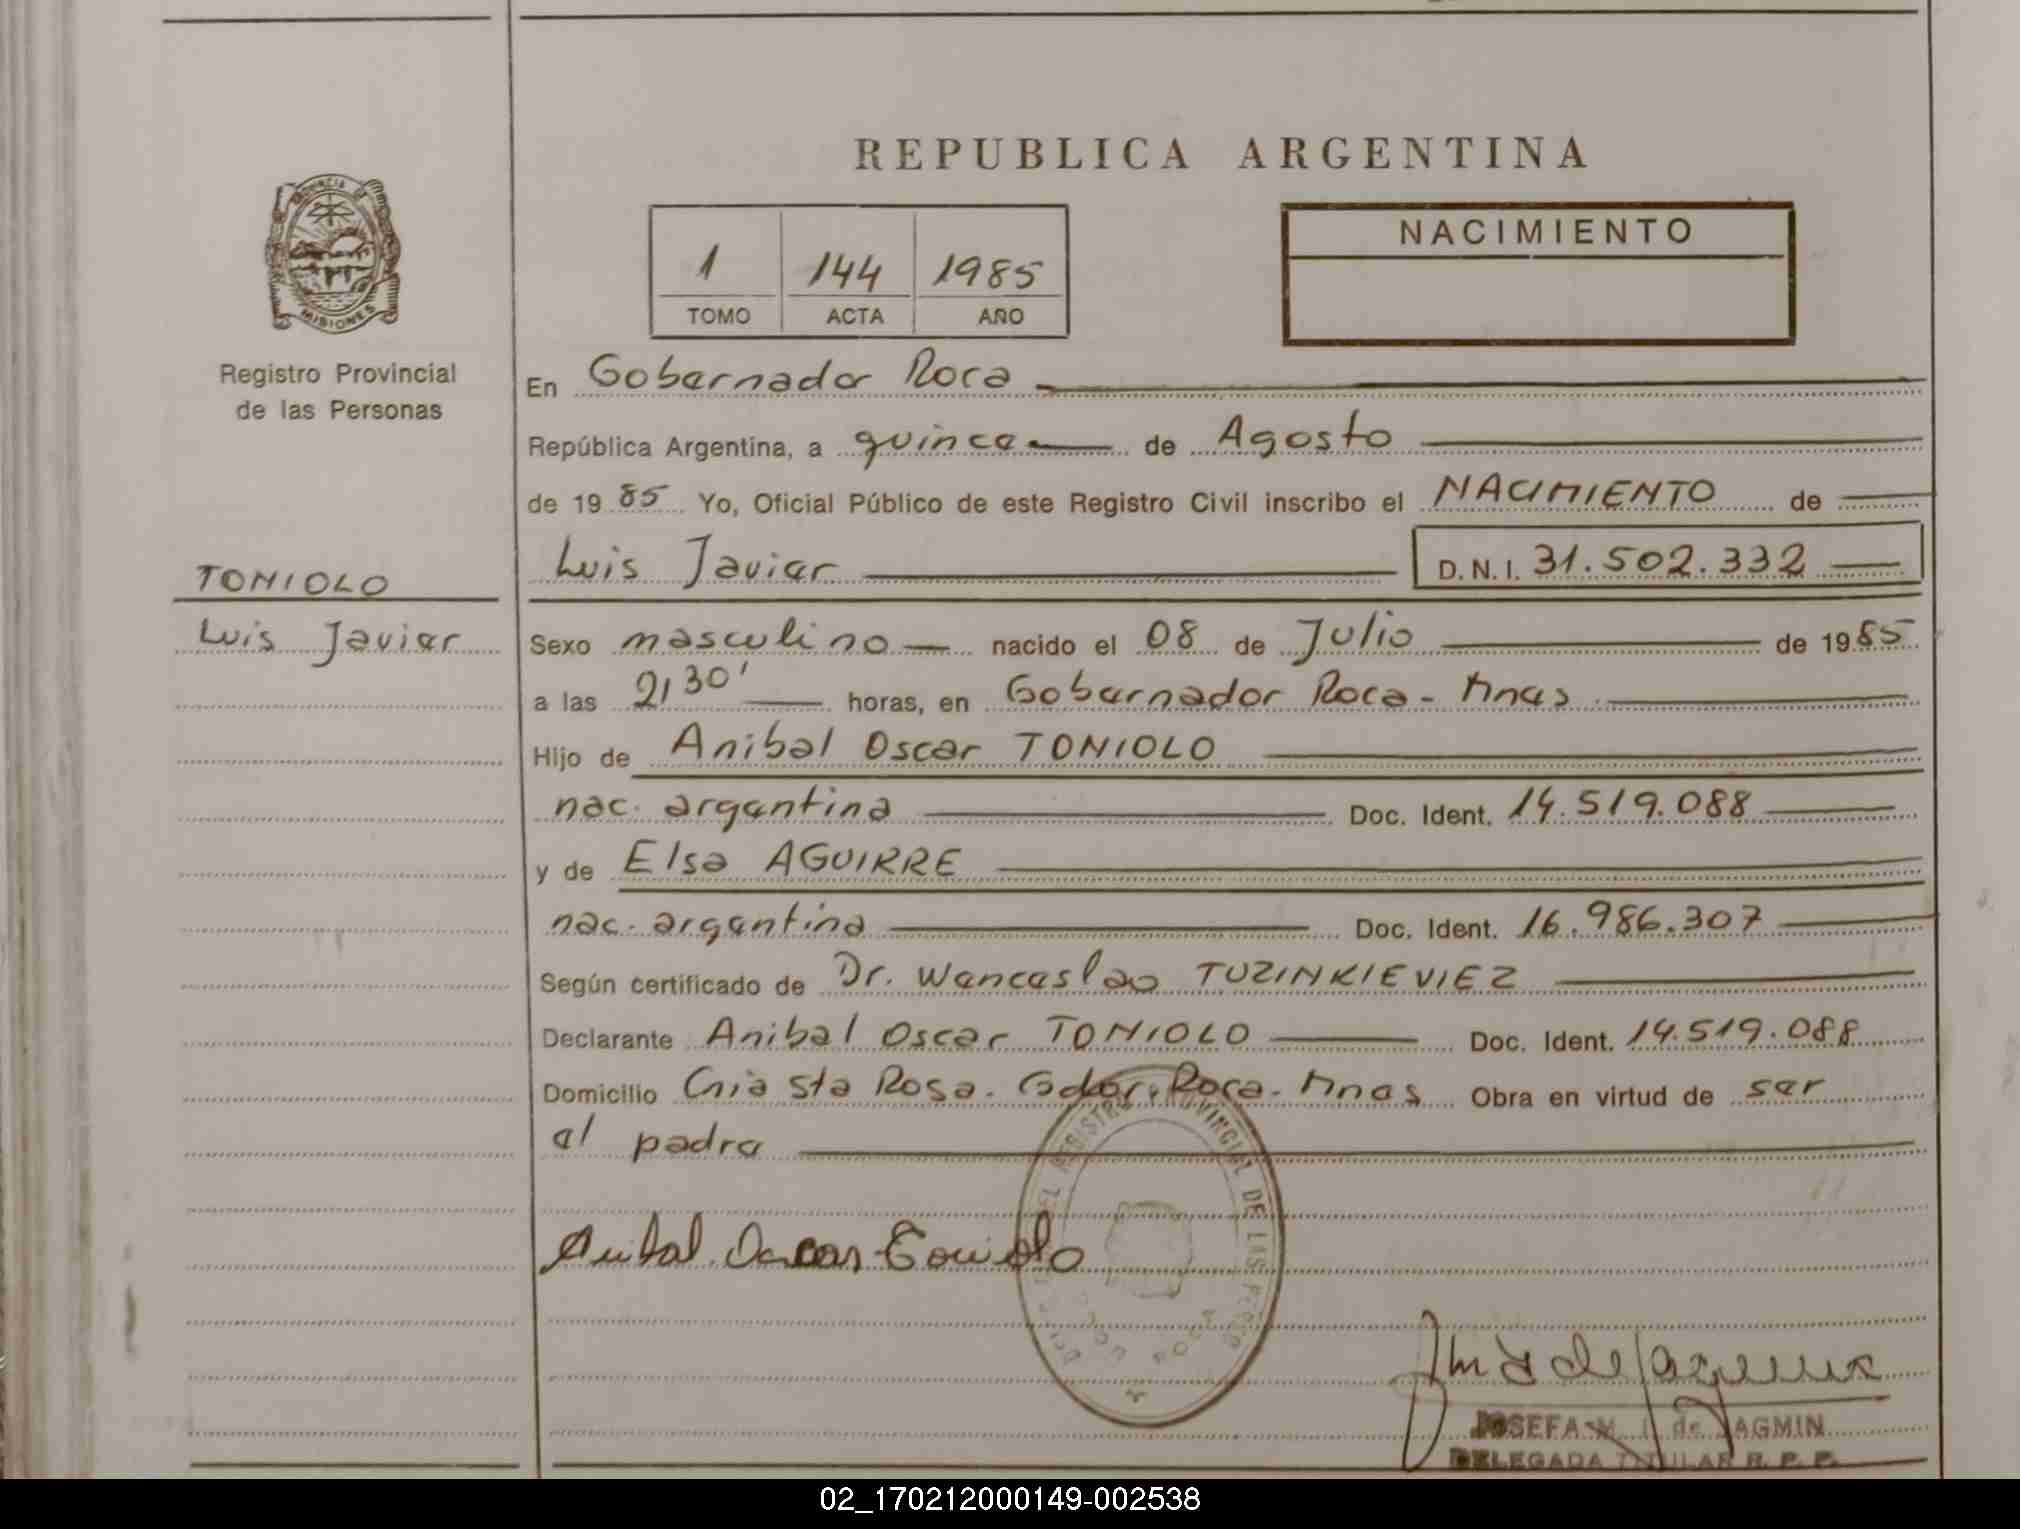 REPUBLICA ARGENTINA
PROVINCIA DE
MISIONES
Registro Provincial
de las Personas
1 144 1985
TOMO ACTA AÑO
NACIMIENTO
En Gobernador Roca
República Argentina, a quince de Agosto
de 1985 Yo, Oficial Público de este Registro Civil inscribo el NACIMIENTO de
Luis Javier D.N.I. 31.502.332
TONIOLO
Luis Javier
Sexo masculino nacido el 08 de Julio de 1985
a las 21,30' horas, en Gobernador Roca - Mnes
Hijo de Anibal Oscar TONIOLO
nac. argentina Doc. Ident. 14.519.088
y de Elsa AGUIRRE
nac. argentina Doc. Ident. 16.986.307
Según certificado de Dr. Wenceslao TUZINKIEVIEZ
Declarante Anibal Oscar TONIOLO Doc. Ident. 14.519.088
Domicilio Cnia Sta Rosa. Gdor. Roca - Mnes Obra en virtud de ser
el padre
Anibal Oscar Toniolo
REGISTRO PROVINCIAL DE LAS
ROCA
JOSEFA M. de JAGMIN
DELEGADA TITULAR R. P. P.
02_170212000149-002538